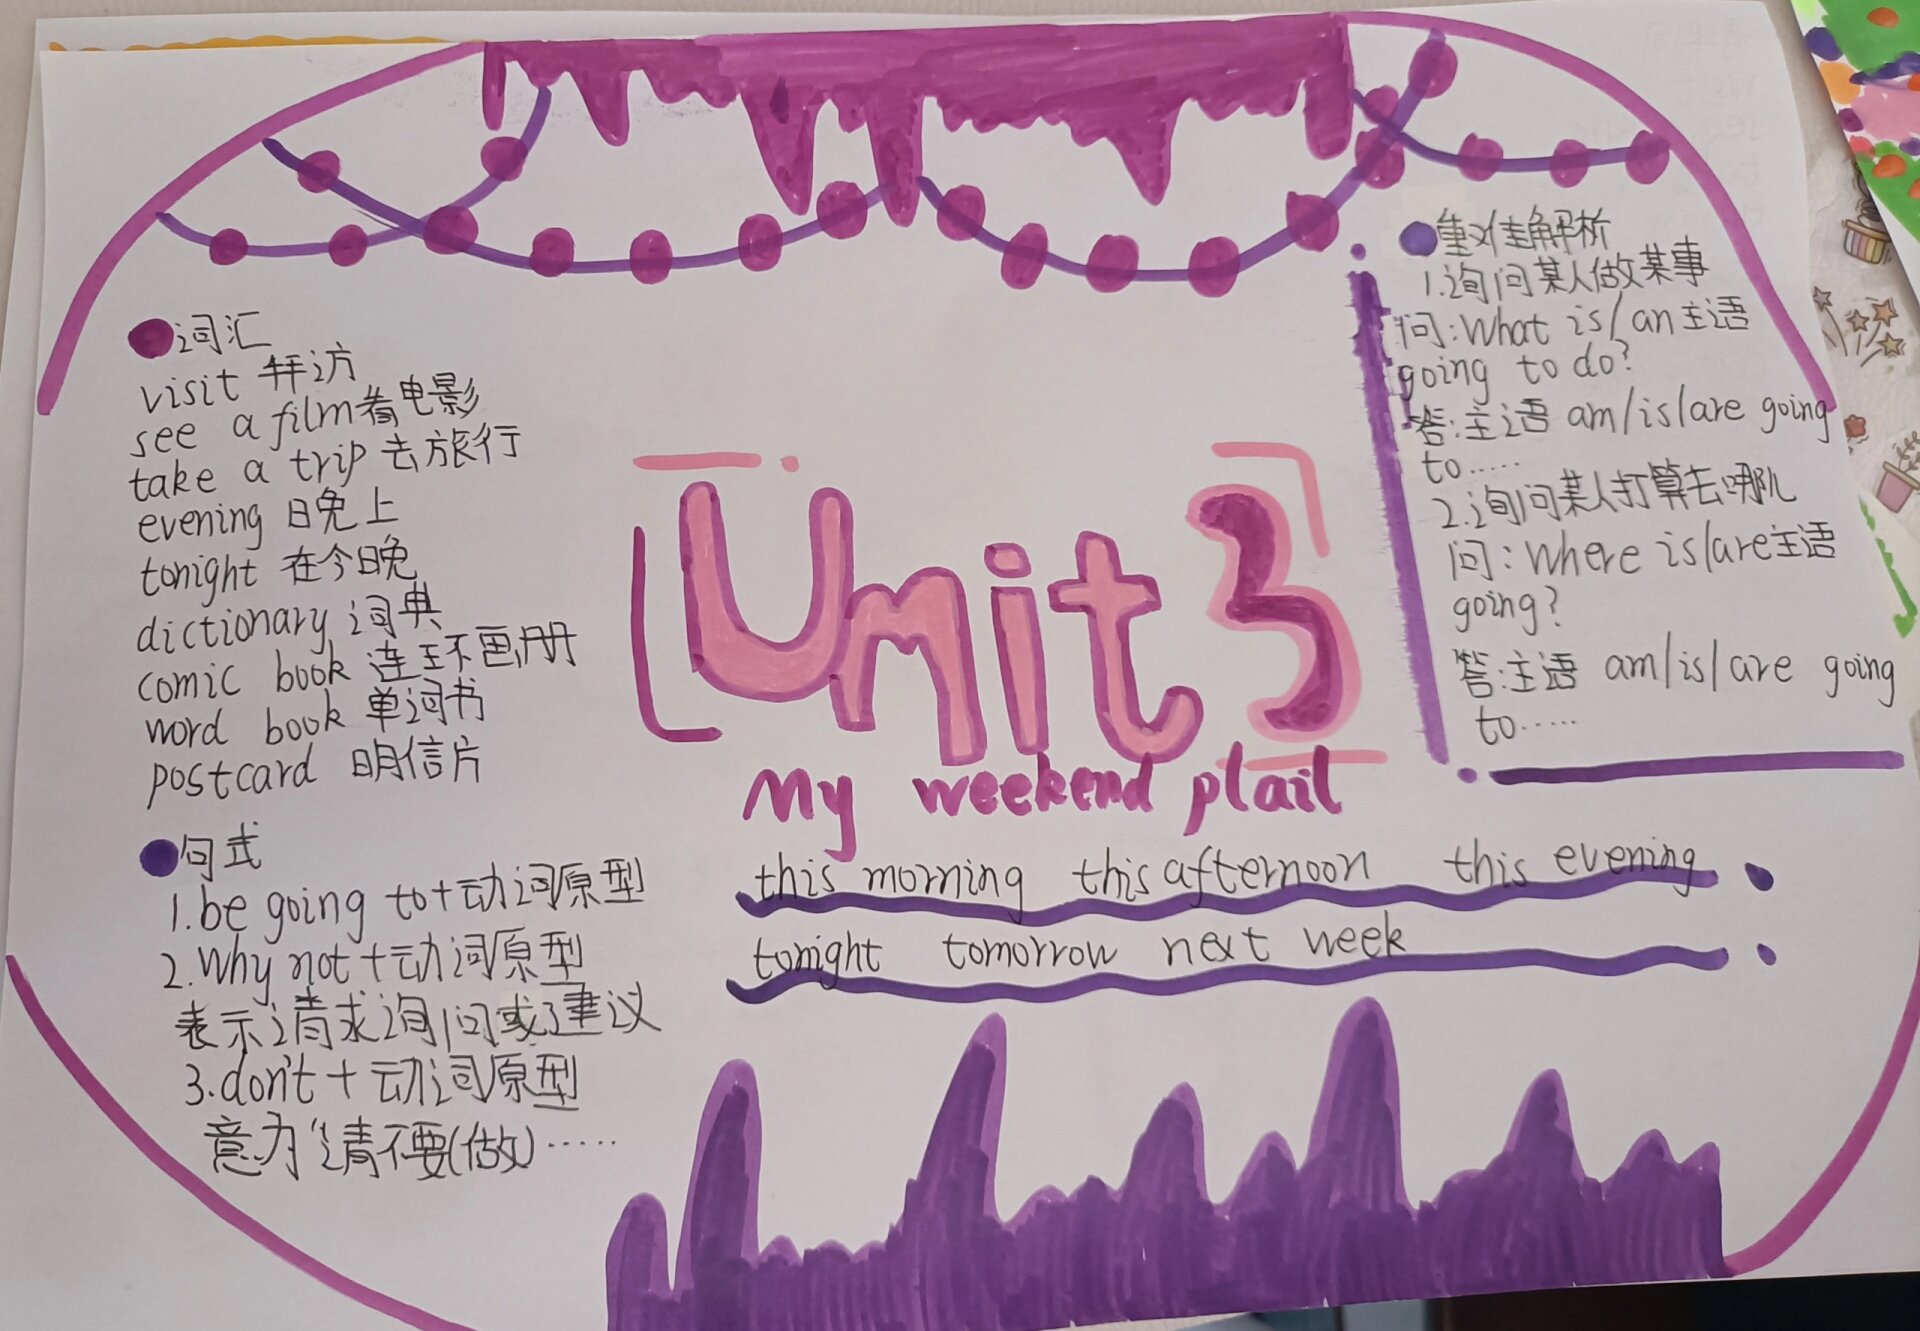 词汇
visit 拜访
see a film 看电影
take a trip 去旅行
evening 日晚上
tonight 在今晚
dictionary 词典
comic book 连环画册
word book 单词书
postcard 明信片
句式
1.be going to+动词原型
2.Why not+动词原型
表示请求询问或建议
3.don't+动词原型
意为"请不要(做)……
Unit 3
My weekend plail
this morning this afternoon this evening
tonight tomorrow next week
重难解析
1.询问某人做某事
问:What is/an主语
going to do?
答:主语 am/is/are going
to……
2.询问某人打算去哪儿
问:Where is/are主语
going?
答:主语 am/is/are going
to……